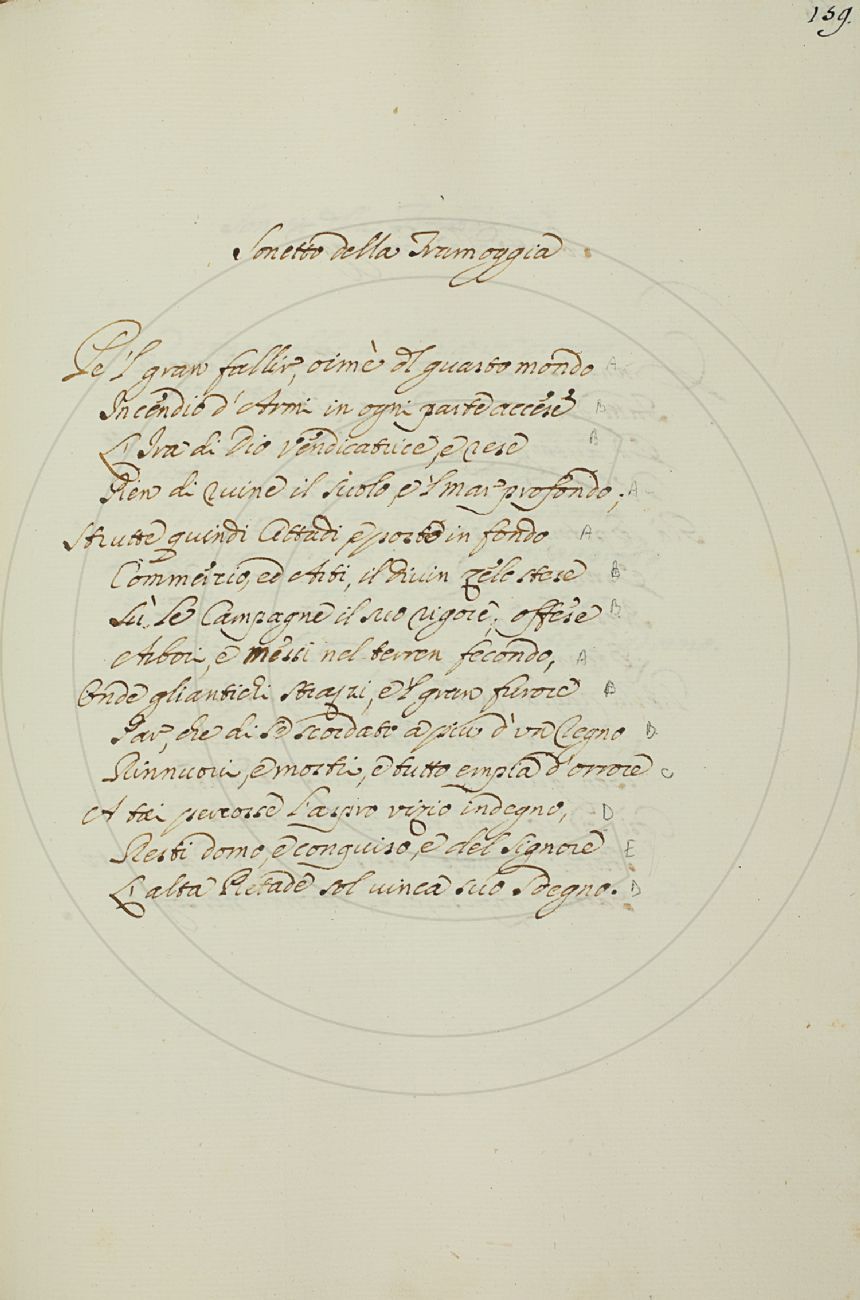 159.
Sonetto della Tramoggia
Pe 'l gran fallir, oimè d'l guasto mondo A
Incendio d'Armi in ogni parte accese B
L'Ira di Dio vendicatrice, e rese B
Pien di ruine il suolo, e 'l mar profondo; A
Strutte quindi Cittadi e porto in fondo A
Commerzio, ed Arti, il divin zelo stese B
Sù le Campagne il suo rigore, offese B
Arbori, e messi nel terren fecondo, A
Onde gli antichi strazzi, e 'l gran furore B
Par, che di sè scordato a più d'un legno D
Rinnuovi, e morti, e tutto empia d'orrore C
A tai percosse l'aspro vizio indegno, D
Resti domo, e conquiso, e del Signore E
L'alta Pietade sol vinca suo Sdegno. D